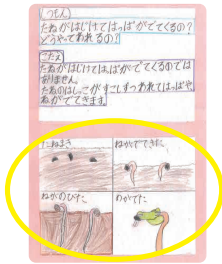 しつもん
たねがはじけてはっぱがでてくるの?
どうやってわれるの?
こたえ
たねがはじけてはっぱがでてくるのでは
ありません。
たねのはしっこがすこしずつわれてはっぱや
ねがでてきます。
たねまき
ねがでてきた
ねがのびた
めがでた